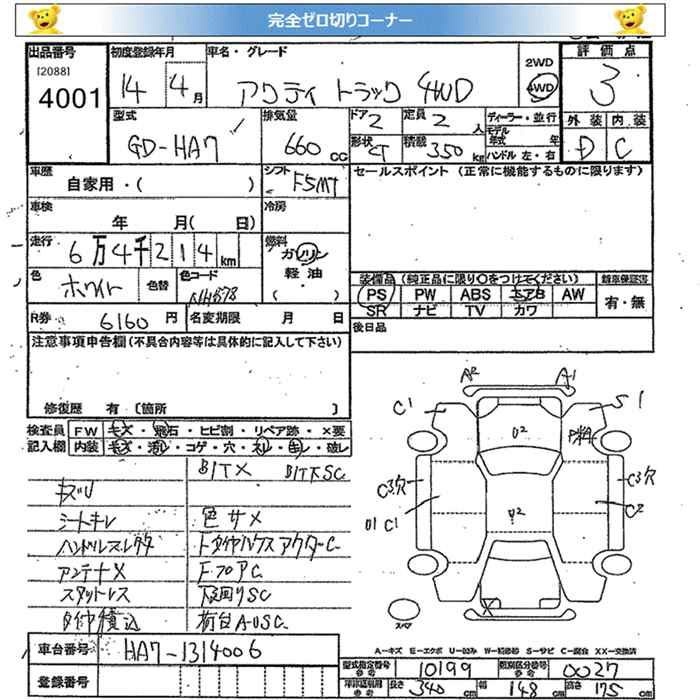 完全ゼロ切りコーナー
出品番号 初度登録年月 車名・グレード 評価点
[2088] 4001
14 4月 アクティ トラック 4WD
2WD
4WD
3
型式 排気量 ドア 定員 ディーラー・並行 外装 内装
GD-HA7 660cc 2 2人 モデル年式 年
形状 CT 積載 350kg ハンドル 左・右 D C
車歴 シフト セールスポイント (正常に機能するものに限ります)
自家用・( ) F5MT
車検 冷房
年 月( 日)
走行 燃料
6万4千214km ガソリン
軽油
( )
色 色替 色コード
ホワイト NH578
装備品 (純正品に限り○をつけてください) 新車保証書
PS PW ABS エアB AW 有・無
SR ナビ TV カワ
R券 6160円 名変期限 月 日
後日品
注意事項申告欄(不具合内容等は具体的に記入して下さい)
修復歴 有 [箇所 ]
検査員 FW キズ・飛石・ヒビ割・リペア跡・×要
記入欄 内装 キズ・汚レ・コゲ・穴・スレ・キレ・破レ
シートキレ 色サメ
アンテナ× FフロアC
スタットレス 下回りSC
タイヤ積込
A2 A1
C1 S1
U2
C3穴 C3穴
C2
スペア
A-キズ E-エクボ U-凹み W-補修跡 S-サビ C-腐食 XX-交換済
車台番号 HA7-1314006
登録番号
型式指定番号 参考 10199 類別区分番号 参考 0027
車体諸元 参考 長さ 340cm 幅 148cm 高さ 175cm